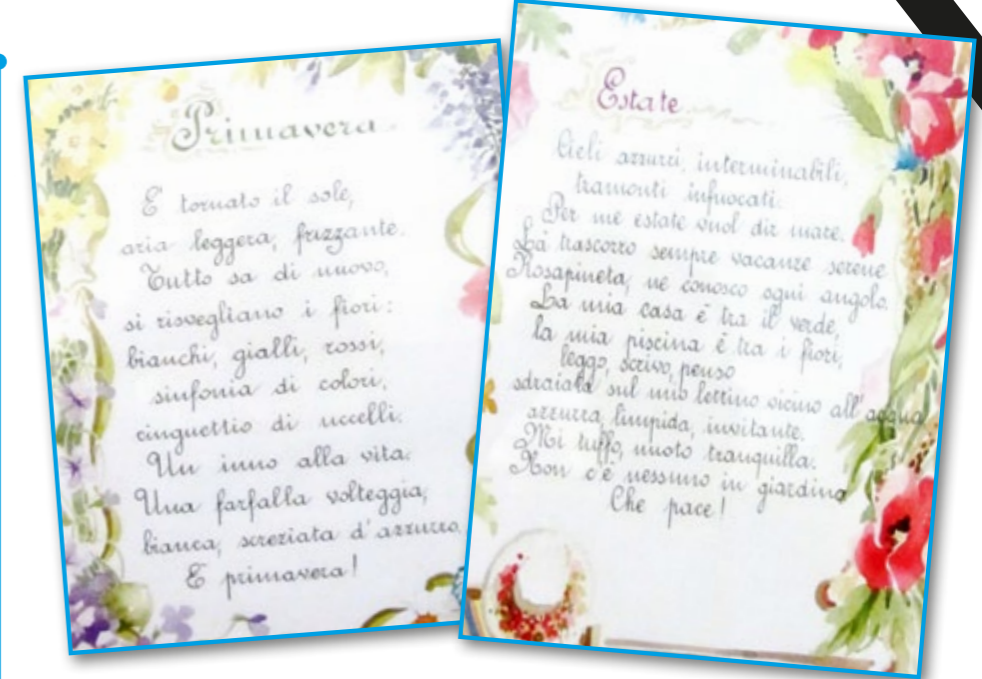 Primavera
E tornato il sole,
aria leggera, frizzante.
Tutto sa di nuovo,
si risvegliano i fiori:
bianchi, gialli, rossi,
sinfonia di colori,
cinguettio di uccelli.
Un inno alla vita.
Una farfalla volteggia,
bianca, screziata d'azzurro.
E primavera!
Estate
Cieli azzurri, interminabili,
tramonti infuocati.
Per me estate vuol dir mare.
La trascorro sempre vacanze serene
Rosapineta, ne conosco ogni angolo.
La mia casa è tra il verde,
la mia piscina è tra i fiori,
leggo, scrivo, penso
sdraiata sul mio lettino vicino all'acqua
azzurra, limpida, invitante.
Mi tuffo, nuoto tranquilla.
Non c'è nessuno in giardino
Che pace!